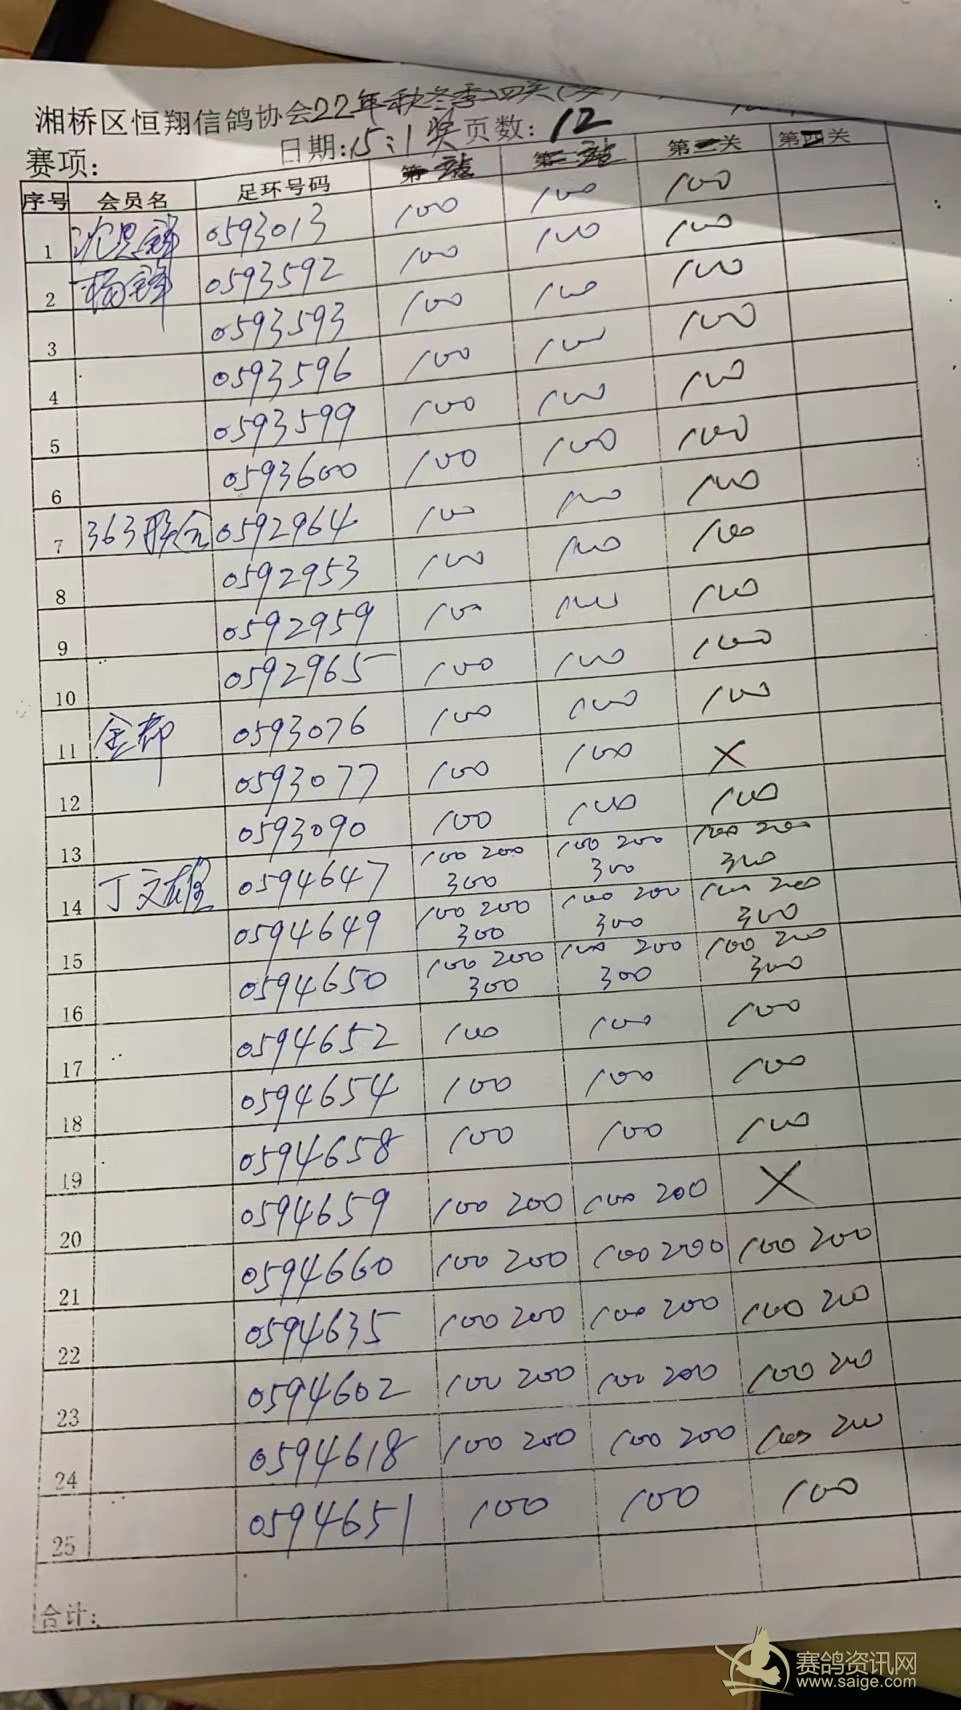 湘桥区恒翔信鸽协会22年秋冬季四关
赛项: 日期:15:1奖 页数:12
序号 会员名 足环号码 第一 第二 第三关 第四关
1 0593013 100 100 100
2 杨锋 0593592 100 100 100
3 0593593 100 100 100
4 0593596 100 100 100
5 0593599 100 100 100
6 0593600 100 100 100
7 363联合 0592964 100 100 100
8 0592953 100 100 100
9 0592959 100 100 100
10 0592965 100 100 100
11 金都 0593076 100 100 100
12 0593077 100 100 X
13 0593090 100 100 100
14 丁文雄 0594647 100 200 300 100 200 300 100 200 300
15 0594649 100 200 300 100 200 300 100 200 300
16 0594650 100 200 300 100 200 300 100 200 300
17 0594652 100 100 100
18 0594654 100 100 100
19 0594658 100 100 100
20 0594659 100 200 100 200 X
21 0594660 100 200 100 200 100 200
22 0594635 100 200 100 200 100 200
23 0594602 100 200 100 200 100 200
24 0594618 100 200 100 200 100 200
25 0594651 100 100 100
合计:
赛鸽资讯网
www.saige.com